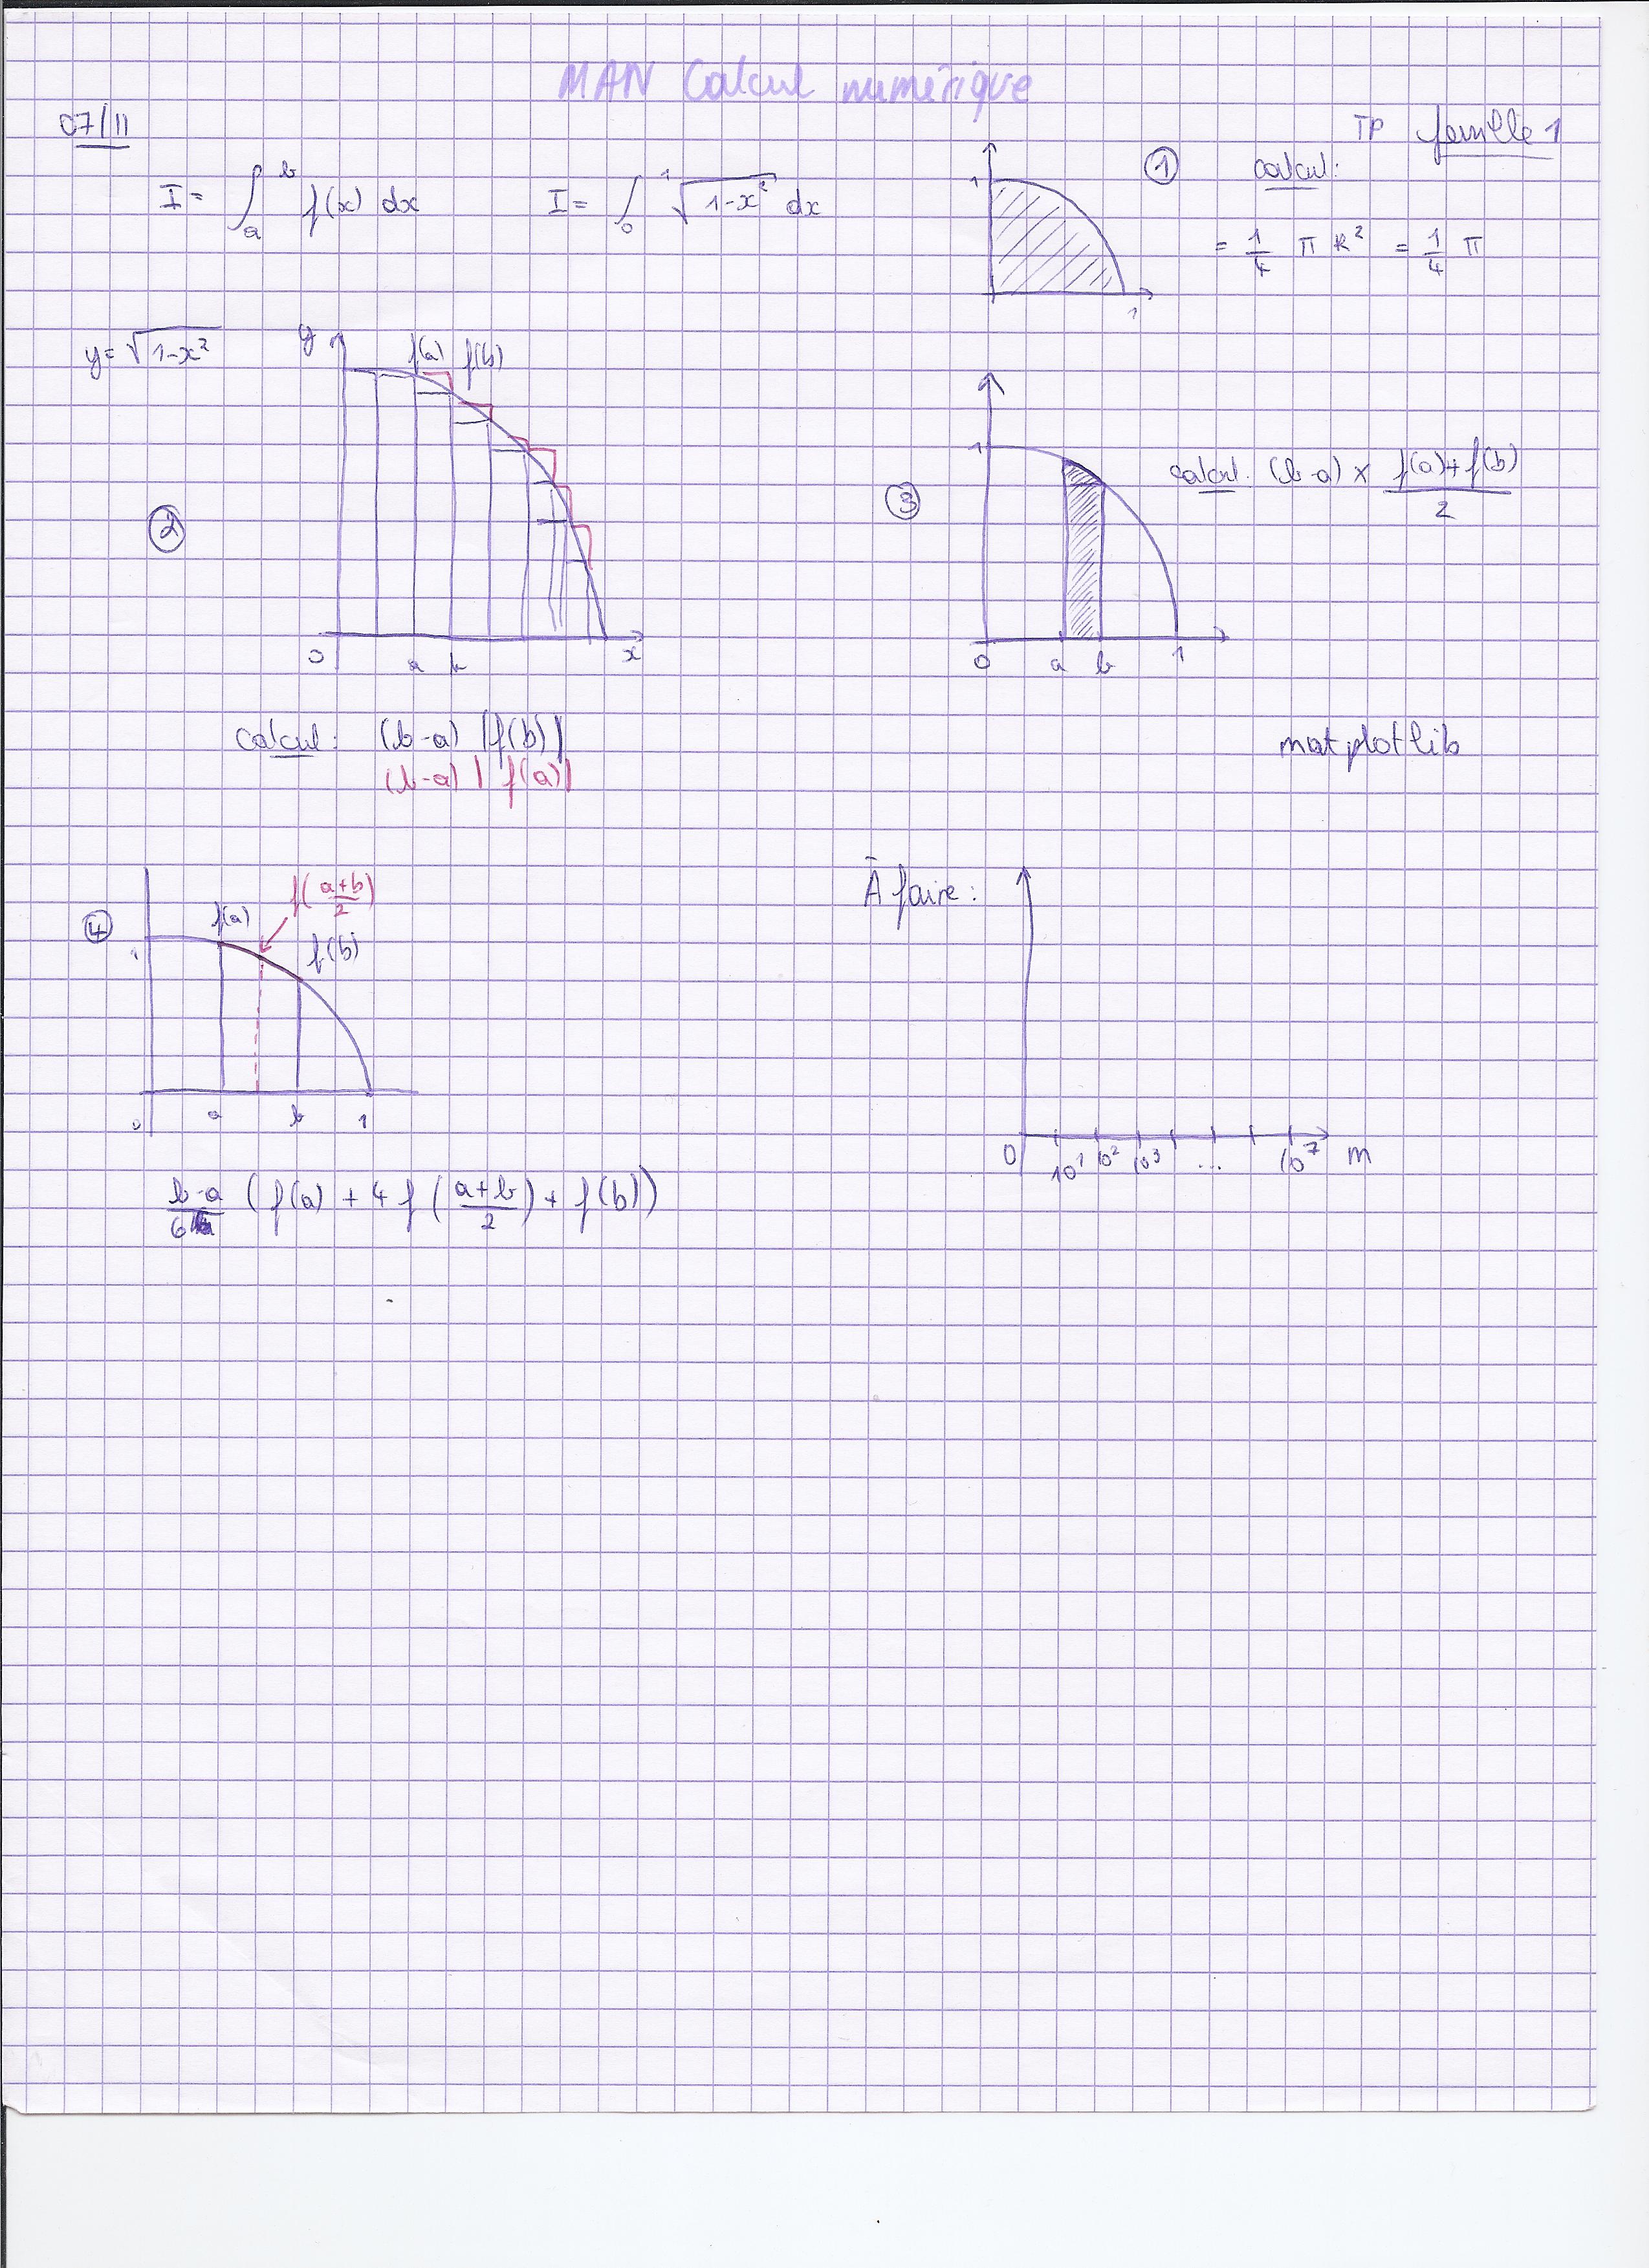 MAN Calcul numérique
07/11
TP feuille 1
I = ∫_a^b f(x) dx
I = ∫_0^1 √(1-x²) dx
1
1
① calcul:
= 1/4 π R² = 1/4 π
y = √(1-x²)
y
f(a) f(b)
②
0 a b x
calcul: (b-a) |f(b)|
(b-a) | f(a)|
③
1
0 a b 1
calcul: (b-a) × (f(a)+f(b))/2
matplotlib
④
f(a)
f((a+b)/2)
f(b)
1
0 a b 1
(b-a)/6 (f(a) + 4 f((a+b)/2) + f(b))
À faire:
0 10¹ 10² 10³ ... 10⁷ m